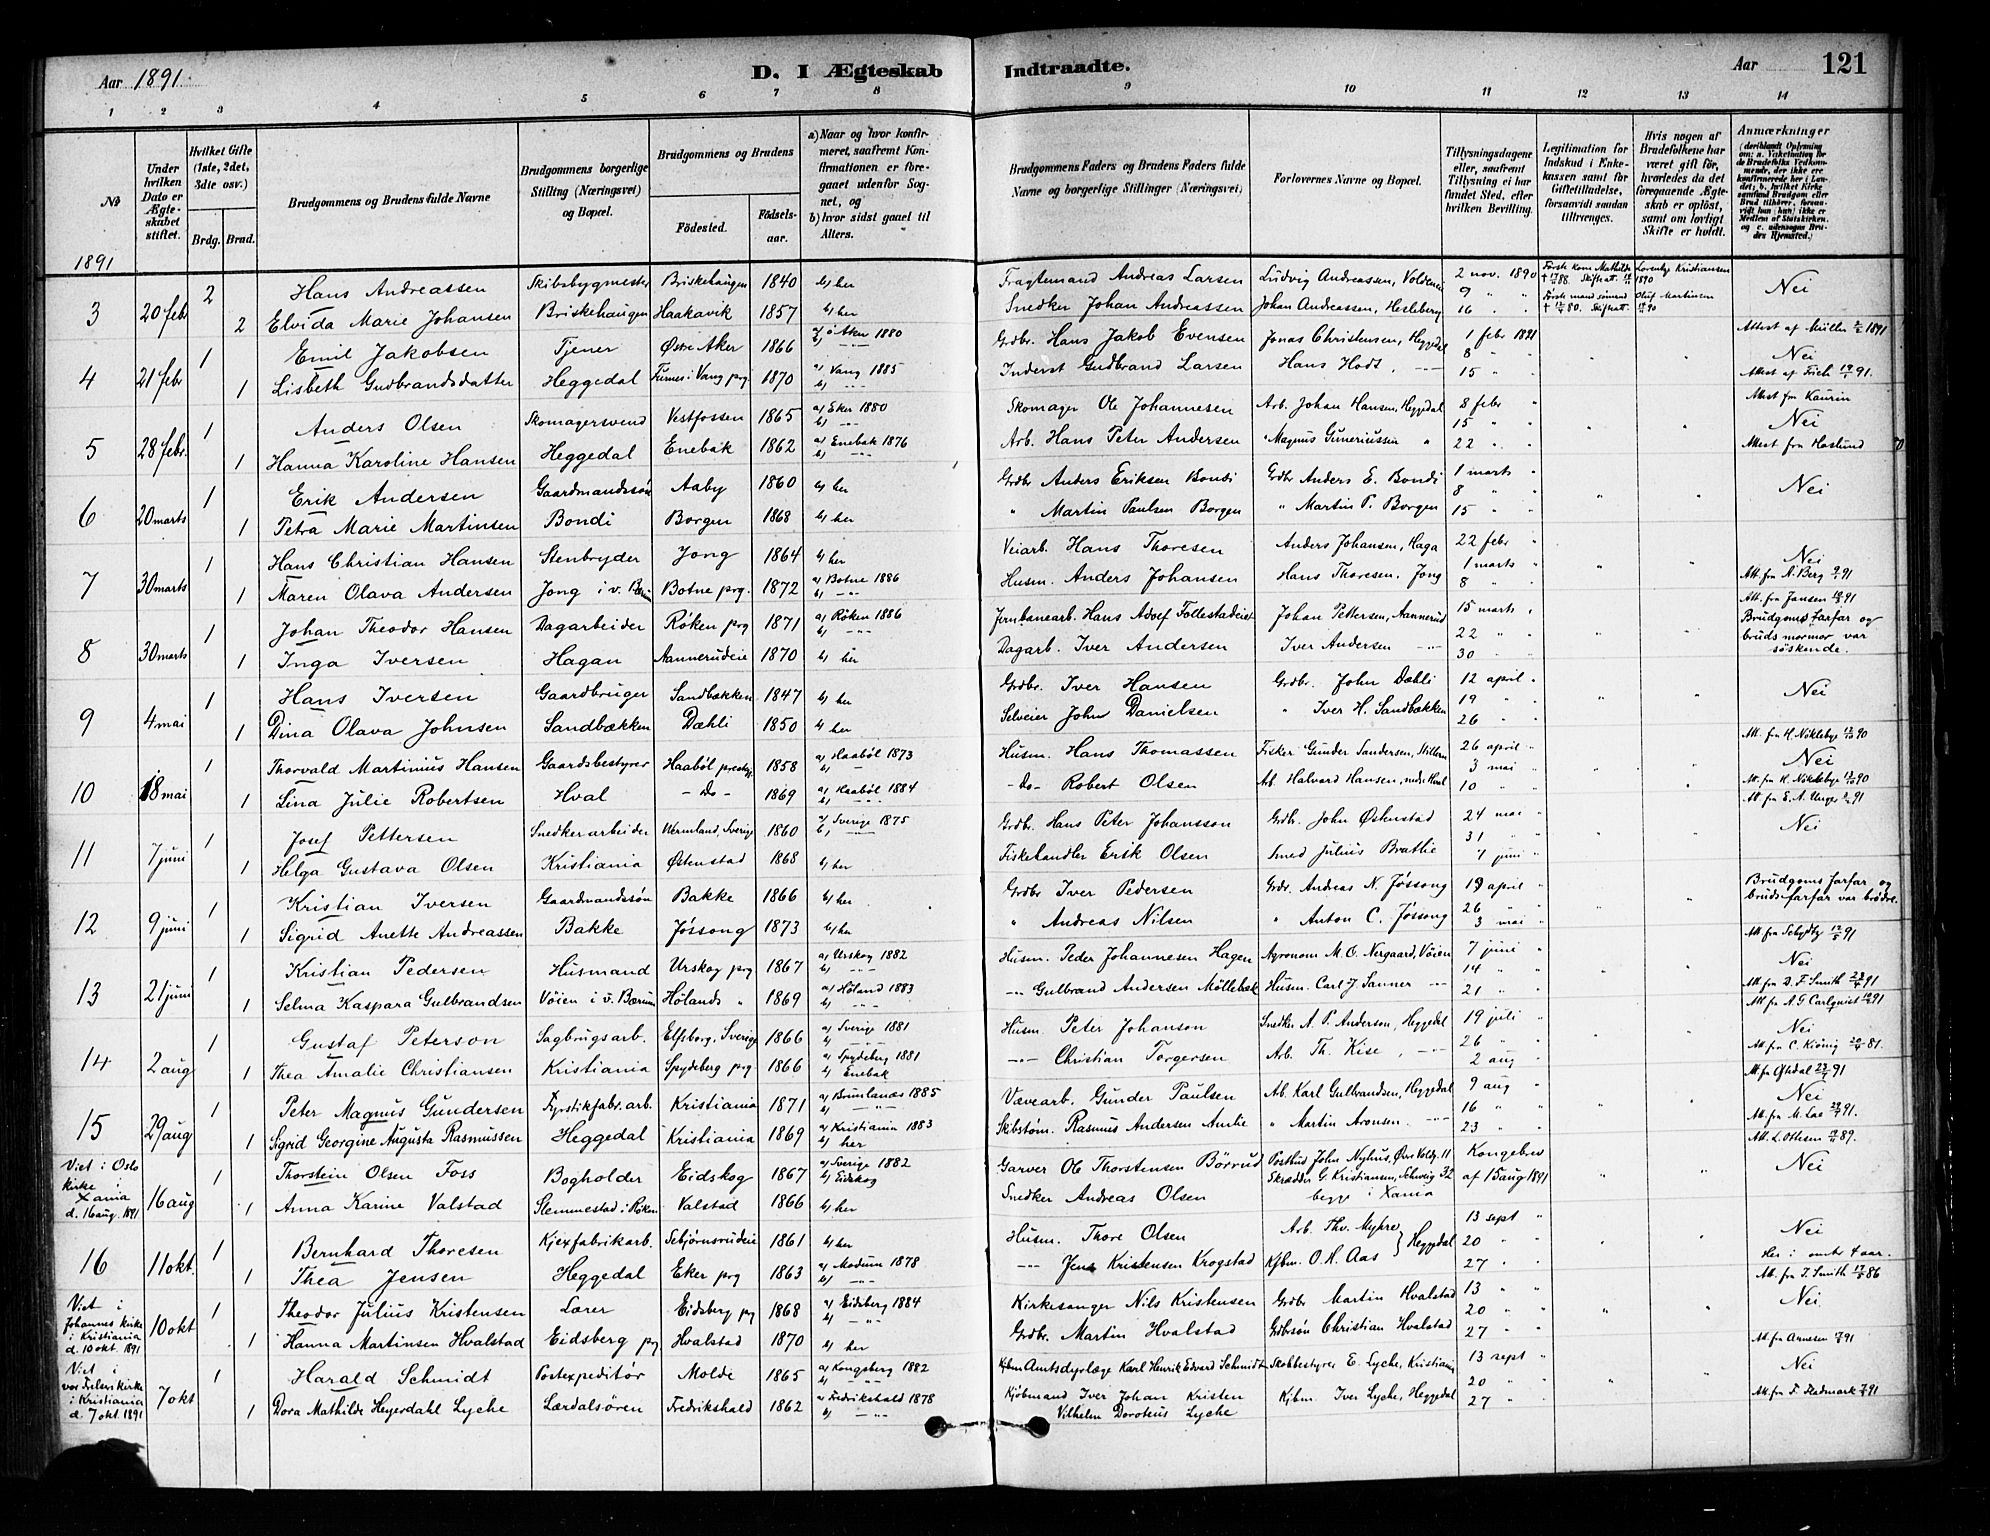 Aar 1891.
D. I Ægteskab Indtraadte.
Aar
121
1 2 3 4 5 6 7 8 9 10 11 12 13 14
№
Under hvilken Dato er Ægteskabet stiftet.
Hvilket Gifte (1ste, 2det, 3die osv.)
Brdg. Brud.
Brudgommens og Brudens fulde Navne
Brudgommens borgerlige Stilling (Næringsvei) og Bopæl.
Brudgommens og Brudens
Fødested.
Fødselsaar.
a) Naar og hvor konfirmeret, saafremt Konfirmationen er foregaaet udenfor Sognet, og
b) hvor sidst gaaet til Alters.
Brudgommens Faders og Brudens Faders fulde Navne og borgerlige Stillinger (Næringsvei)
Forlovernes Navne og Bopæl.
Tillysningsdagene eller, saafremt Tillysning ei har fundet Sted, efter hvilken Bevilling.
Legitimation for Indskud i Enkekassen samt for Giftetilladelse, forsaavidt saadan tiltrænges.
Hvis nogen af Brudefolkene har været gift før, hvorledes da det foregaaende Ægteskab er opløst, samt om lovligt Skifte er holdt.
Anmærkninger
1891
3 20 febr 2 Hans Andreassen Skibsbygmester Briskehaugen 1840 b) her Fragtemand Andreas Larsen Ludvig Andreassen, Volden 2 nov. 1890 Nei
2 Elvida Marie Johansen Briskehaugen Haakavik 1857 b) her Snedker Johan Andreassen Johan Andreassen, Hesleberg 9 " " 16 " "
4 21 febr 1 Emil Jakobsen Tjener Østre Aker 1866 a) Ø. Aker 1880 Grdbr. Hans Jakob Evensen Jonas Christensen, Heggedal 1 febr 1891 Attest af Müller 1891
1 Lisbeth Gudbrandsdatter Heggedal Furnes i Vang prg 1870 a) Vang 1885 Inderst Gudbrand Larsen Hans Hodt, 8 " " 15 " " Nei
5 28 febr. 1 Anders Olsen Skomagersvend Vestfossen 1865 a) Eker 1880 Skomager Ole Johannesen Arb. Johan Hansen, Heggedal 8 febr " 15 " " Attest fra Kaurin Nei
1 Hanna Karoline Hansen Heggedal Enebak 1862 a) Enebak 1876 Arb. Hans Peter Andersen " Magnus Guneriussen " 22 " " Attest fra Haslund
6 20 marts 1 Erik Andersen Gaardmandssøn Aaby 1860 b) her Grdbr Anders Eriksen Bondi Grdbr Anders E. Bondi 1 marts " 8 " " Nei
1 Petra Marie Martinsen Bondi Borgen 1868 b) her " Martin Paulsen Borgen " Martin P. Borgen 15 " "
7 30 marts 1 Hans Christian Hansen Stenbryder Jong 1864 b) her Veiarb. Hans Thoresen Anders Johansen, Haga 22 febr " 1 marts " Nei
1 Maren Olava Andersen Jong i v. Bærum Botne prg. 1872 a) Botne 1886 Husm. Anders Johansen Hans Thoresen, Jong 8 " Att. fra A. Berg 91
8 30 marts 1 Johan Theodor Hansen Dagarbeider Røken prg 1871 a) Røken 1886 Jernbanearb. Hans Adolf Follestadeiet Johan Pettersen, Aannerud 15 marts " 22 " " Att. fra Jansen 91
1 Inga Iversen Hagan Aannerudeie 1870 b) her Dagarb. Iver Andersen Iver Andersen 30 " Brudgoms farfar og bruds mormor var søskende.
9 4 mai 1 Hans Iversen Gaardbruger Sandbækken 1847 b) her Grdbr. Iver Hansen Grdbr. John Dæhli 12 april " 19 " " Nei
1 Dina Olava Johnsen Sandbækken Dæhli 1850 b) her Selveier John Danielsen " Iver H. Sandbækken 26 "
10 18 mai 1 Thorvald Martinius Hansen Gaardsbestyrer Haabøl prestegj. 1858 a) Haabøl 1873 Husm. Hans Thomassen Fisker Gunder Sandersen, 26 april " 3 mai " Nei
1 Lina Julie Robertsen Hval - Do - 1869 a) Haabøl 1884 -Do- Robert Olsen Arb. Halvard Hansen, nedre Hval 10 "
11 7 juni 1 Josef Pettersen Snedkerarbeider Wermland, Sverige 1860 a) Sverige 1875 Grdbr. Hans Peter Johansson Grdbr. John Østenstad 24 mai " 31 " Att. fra E. A. Unger 91 Nei
1 Helga Gustava Olsen Kristiania Østenstad 1868 b) her Fiskehandler Erik Olsen Smed Julius Brathe 7 juni "
12 9 juni 1 Kristian Iversen Gaardmandssøn Bakke 1866 b) her Grdbr Iver Pedersen Grdbr. Andreas N. Jøssong 19 april " 26 " Brudgoms farfar og bruds farfar var brødre.
1 Sigrid Anette Andreassen Bakke Jøssong 1873 b) her " Andreas Nilsen " Anton C. Jøssong 3 mai "
13 21 juni 1 Kristian Pedersen Husmand Urskog prg 1867 a) Urskog 1882 Husm. Peder Johannesen Hagen Agronom M. O. Nergaard, Vøien 7 juni " 14 " Nei
1 Selma Kaspara Gulbrandsen Vøien i v. Bærum Hølands " 1869 a) Høland 1883 Gulbrand Andersen Møllebæk Husm. Carl J. Sanner 21 " Att fra D. F. Smith 91
14 2 aug 1 Gustaf Peterson Sagbrugsarb. Elfsborg, Sverige 1866 a) Sverige 1881 Husm. Peter Johanson Snedker A. P. Anderson, Heggedal 19 juli " 26 " Att fra A. G. Carlqvist 91 Nei
1 Thea Amalie Christiansen Kristiania Spydeberg prg 1866 a) Spydeberg 1881 b) Enebak Christian Torgersen Arb. Th. Kise, 2 aug
15 29 aug 1 Peter Magnus Gundersen Fyrstikfabr.arb. Kristiania 1871 a) Brunlanæs 1885 Vævearb. Gunder Paulsen Arb. Karl Gulbrandsen, Heggedal 9 aug " 16 " Nei
1 Sigrid Georgine Augusta Rasmussen Heggedal Kristiania 1869 a) Kristiania 1883 b) her Skibstøm. Rasmus Andersen Amlie " Martin Aronsen 23 "
Viet i Oslo kirke i Xania d. 16 aug. 1891 16 aug 1 Thorstein Olsen Foss Bogholder Eidskog 1867 a) Sverige 1882 b) Eidskog Garver Ole Thorstensen Børrud Postbud John Nyhus, Kongebrev af 15 aug 1891 Nei
1 Anna Karine Valstad Slemmestad i Røken Valstad 1866 b) her Snedker Andreas Olsen Skrædder G. Kristiansen, begge i Xania
16 11 okt. 1 Bernhard Thoresen Kjexfabrikarb. Sebjørnsrudeie 1861 b) her Husm. Thore Olsen Arb. Thv. Myhre Heggedal 13 sept " 20 " Nei
1 Thea Jensen Heggedal Eker prg 1863 a) Modum 1878 Jens Kristensen Krogstad Kjbm. O. H. Aas 27 " Her i omtr 4 aar.
Viet i Johannes kirke i Kristiania d. 10 okt. 1891 10 okt 1 Theodor Julius Kristensen Lærer Eidsberg prg 1868 a) Eidsberg 1884 Kirkesanger Nils Kristensen Grdbr Martin Hvalstad 13 " 20 " Nei
1 Hanna Martinsen Hvalstad Eidsberg prg Hvalstad 1870 b) her Grdbr. Martin Hvalstad Grdbrsøn Christian Hvalstad 27 "
Viet i vor Frelsers kirke i Kristiania d. 7 okt. 1891 7 okt 1 Harald Schmidt Postexpeditør Molde 1865 a) Kongsberg 1882 Amtsdyrlæge Karl Henrik Edvard Schmidt Skobbestyrer E. Lyche, Kristiania 13 sept " 20 " Nei
1 Dora Mathilde Heyerdahl Lyche Lærdalsören Fredrikshald 1862 a) Fredrikshald 1878 Kjøbmand Iver Johan Kristen Vilhelm Doroteus Lyche Kjbm. Iver Lyche, Heggedal 27 "